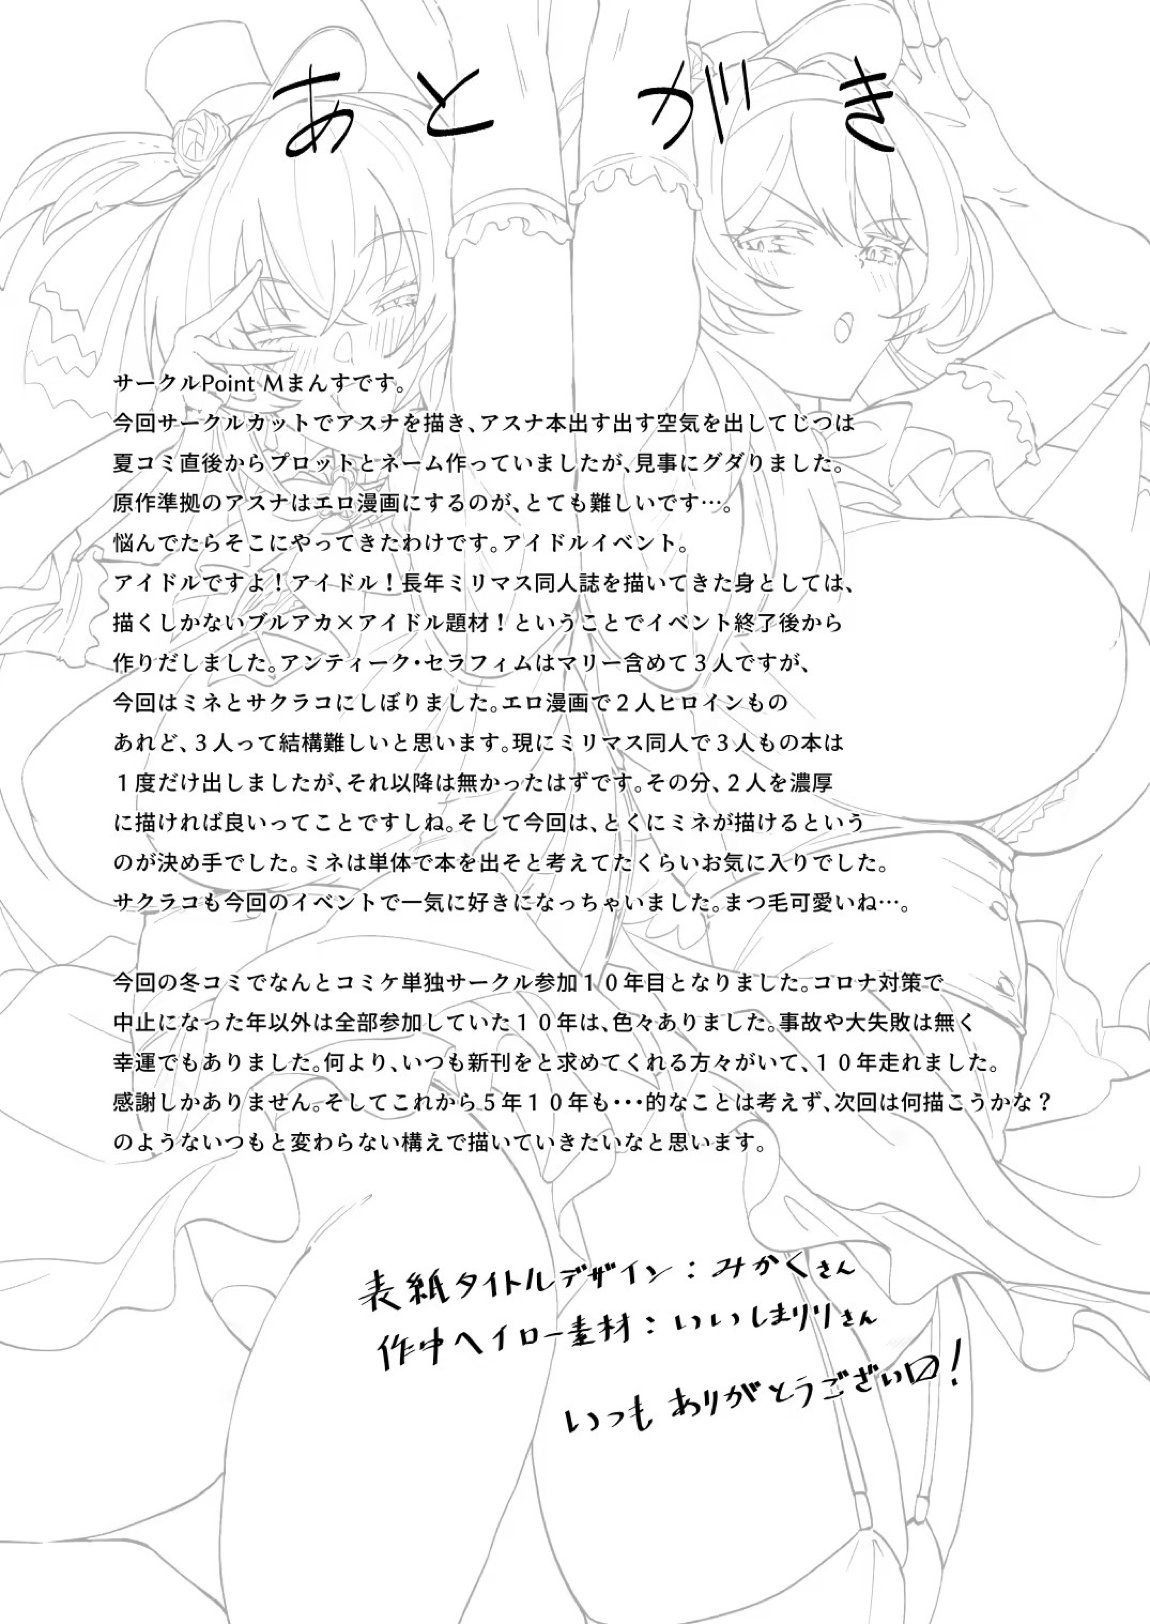 あとがき
サークルPoint Mまんすです。
今回サークルカットでアスナを描き、アスナ本出す出す空気を出してじつは
夏コミ直後からプロットとネーム作っていましたが、見事にグダりました。
原作準拠のアスナはエロ漫画にするのが、とても難しいです…。
悩んでたらそこにやってきたわけです。アイドルイベント。
アイドルですよ！アイドル！長年ミリマス同人誌を描いてきた身としては、
描くしかないブルアカ×アイドル題材！ということでイベント終了後から
作りだしました。アンティーク・セラフィムはマリー含めて３人ですが、
今回はミネとサクラコにしぼりました。エロ漫画で２人ヒロインもの
あれど、３人って結構難しいと思います。現にミリマス同人で３人もの本は
１度だけ出しましたが、それ以降は無かったはずです。その分、２人を濃厚
に描ければ良いってことですしね。そして今回は、とくにミネが描けるという
のが決め手でした。ミネは単体で本を出そと考えてたくらいお気に入りでした。
サクラコも今回のイベントで一気に好きになっちゃいました。まつ毛可愛いね…。
今回の冬コミでなんとコミケ単独サークル参加１０年目となりました。コロナ対策で
中止になった年以外は全部参加していた１０年は、色々ありました。事故や大失敗は無く
幸運でもありました。何より、いつも新刊をと求めてくれる方々がいて、１０年走れました。
感謝しかありません。そしてこれから５年１０年も・・・的なことは考えず、次回は何描こうかな？
のようないつもと変わらない構えで描いていきたいなと思います。
表紙タイトルデザイン：みかくさん
作中ヘイロー素材：いいしまりりさん
いつもありがとうござい〼！